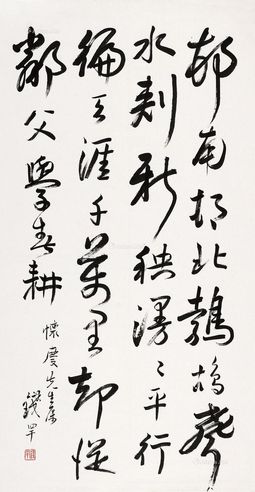 邨南邨北鵓鴣聲
水刺新秧漫〻平行
徧天涯千萬里却從
鄰父學春耕
懷慶先生屬
錢罕